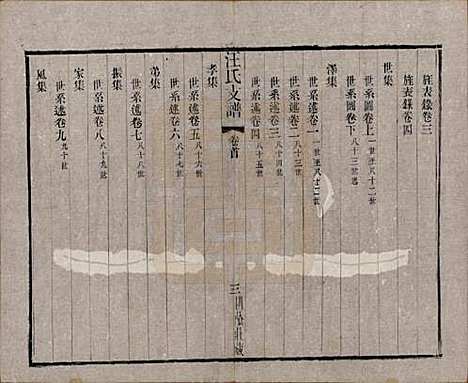 旌表錄卷三
旌表錄卷四
世集
世系圖卷上一世至八十二世
世系圖卷下八十三世起
澤集
世系述卷一一世至八十二世
世系述卷二八十三世
世系述卷三八十四世
世系述卷四八十五世
孝集
汪氏支譜 卷首 三
世系述卷五八十六世
世系述卷六八十七世
弟集
世系述卷七八十八世
振集
世系述卷八八十九世
家集
世系述卷九九十世
風集